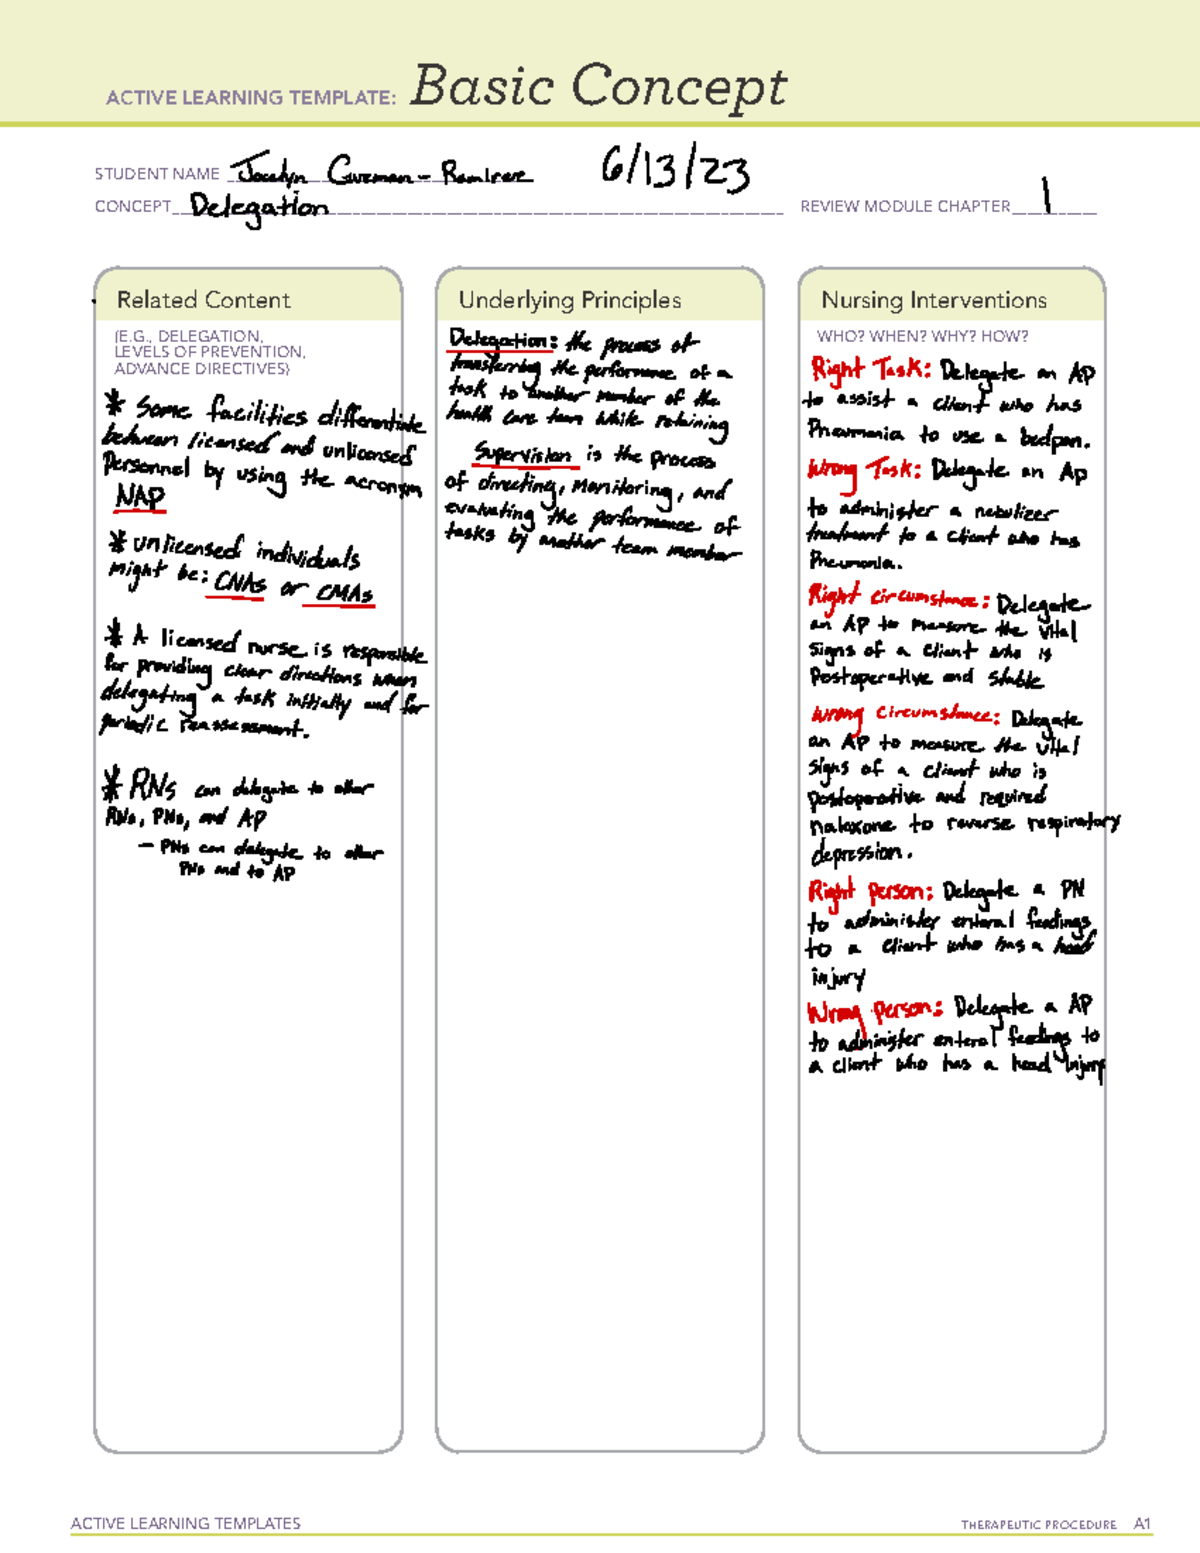 ACTIVE LEARNING TEMPLATE: Basic Concept
STUDENT NAME Jocelyn Guzman - Ramirez 6/13/23
CONCEPT Delegation REVIEW MODULE CHAPTER 1
Related Content
(E.G., DELEGATION,
LEVELS OF PREVENTION,
ADVANCE DIRECTIVES)
* Some facilities differentiate
between licensed and unlicensed
Personnel by using the acronym
NAP
* unlicensed individuals
might be: CNAs or CMAs
* A licensed nurse is responsible
for providing clear directions when
delegating a task initially and for
periodic reassessment.
* RNs can delegate to other
RNs, PNs, and AP
- PNs can delegate to other
PNs and to AP
Underlying Principles
Delegation: the process of
transferring the performance of a
task to another member of the
health care team while retaining
Supervision is the process
of directing, monitoring, and
evaluating the performance of
tasks by another team member
Nursing Interventions
WHO? WHEN? WHY? HOW?
Right Task: Delegate an AP
to assist a client who has
Pneumonia to use a bedpan.
Wrong Task: Delegate an Ap
to administer a nebulizer
treatment to a client who has
Pneumonia.
Right circumstance: Delegate
an AP to measure the vital
signs of a client who is
Postoperative and stable
Wrong circumstance: Delegate
an AP to measure the vital
signs of a client who is
postoperative and required
naloxone to reverse respiratory
depression.
Right person: Delegate a PN
to administer enteral feedings
to a client who has a head
injury
Wrong person: Delegate a AP
to administer enteral feedings to
a client who has a head injury
ACTIVE LEARNING TEMPLATES
THERAPEUTIC PROCEDURE A1